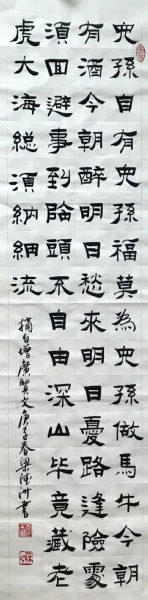 兒孫自有兒孫福莫為兒孫做馬牛今朝
有酒今朝醉明日愁來明日憂路逢險處
須回避事到臨頭不自由深山毕竟藏老
虎大海總須納細流
摘自增廣賢文庚子春梁洲書